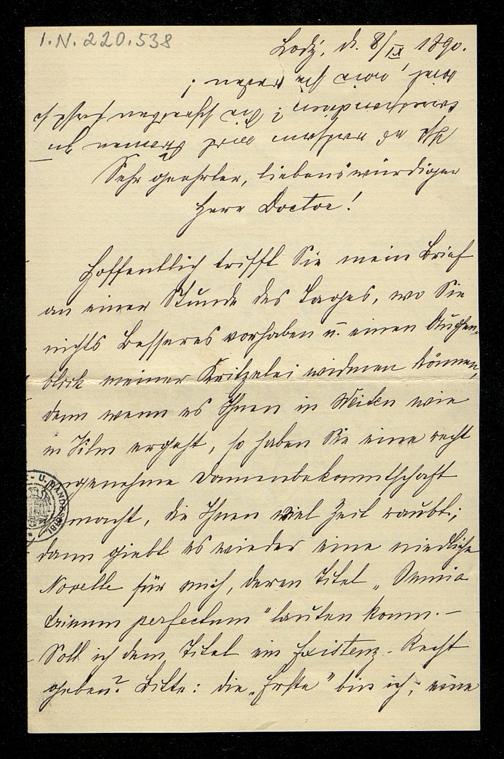 I.N. 220.538
Lodź, d. 8/IX 1890.
Sehr geehrter, liebenswürdiger
Herr Doctor!
Hoffentlich trifft Sie mein Brief
an einer Stunde des Tages, wo Sie
nichts Besseres vorhaben u. einen Augen-
blick meiner Kritzelei widmen können,
denn wenn es Ihnen in Weiden wie
in Ilm ergeht, so haben Sie eine recht
angenehme Damenbekanntschaft
gemacht, die Ihnen viel Zeit raubt;
dann giebt es wieder eine niedliche
Novelle für mich, deren Titel „Omnia
trinum perfectum" lauten kann. –
Soll ich dem Titel ein Existenz-Recht
geben? Bitte: die „Erste" bin ich; eine